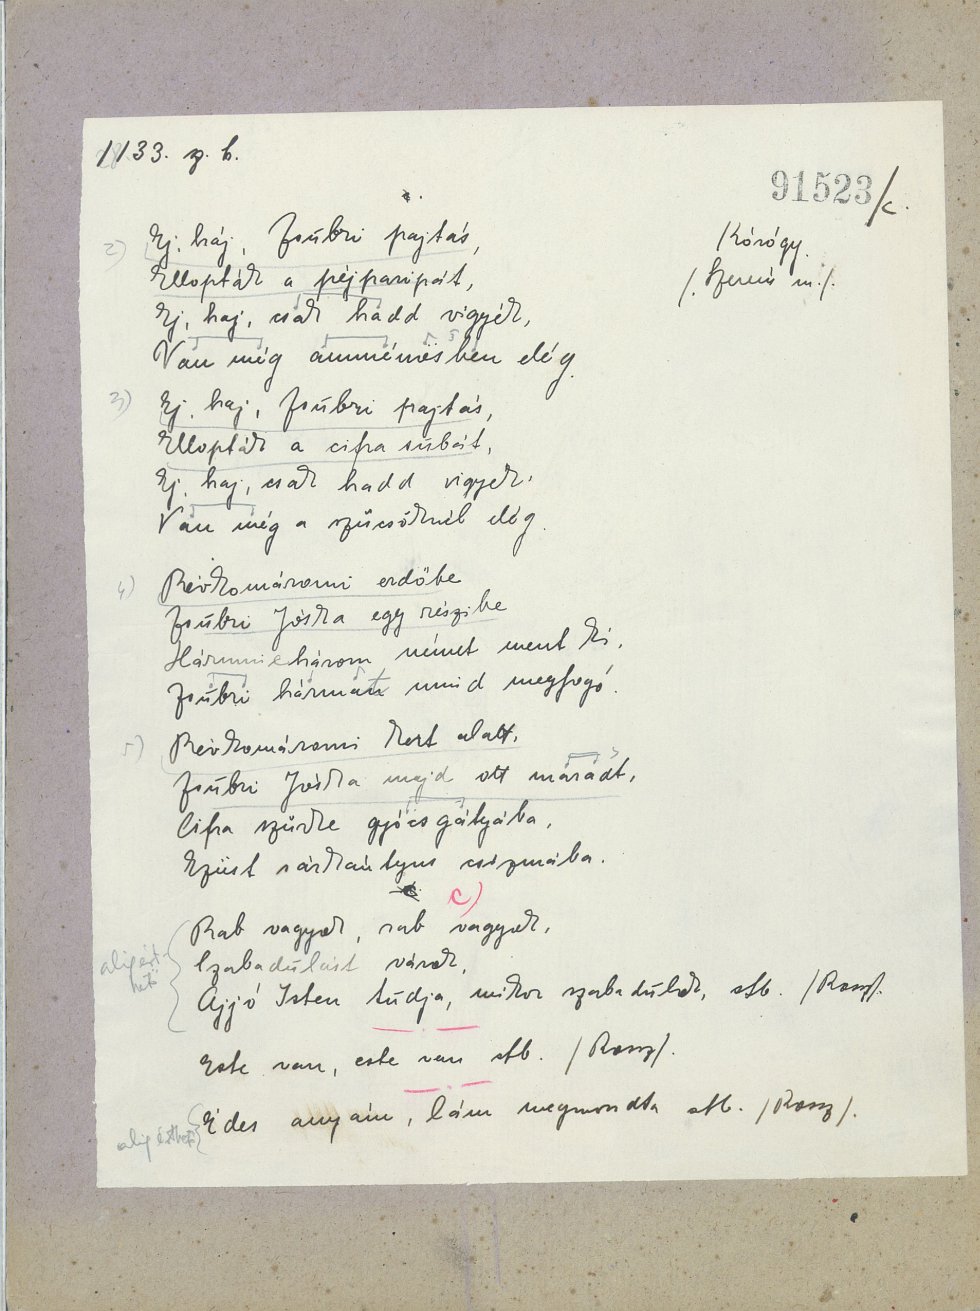 1133. z. h.
91523/c.
Kórógy.
/. Szerém m./.
2) Ej, haj, Zsubri pajtás,
Ellopták a pejparipát,
Ej, haj, csak hadd vigyék,
Van még amménësben elég.
3) Ej, haj, Zsubri pajtás,
Ellopták a cifra subát,
Ej, haj, csak hadd vigyék,
Van még a szücsöknél elég.
4) Révkomáromi erdőbe
Zsubri Jóska egy részibe
három német ment ki,
Zsubri hárman mind megfogó.
5) Révkomáromi kert alatt,
Zsubri Jóska majd ott maradt,
Cifra szűrke gyócsgátyába,
Ezüst sárkántyus csizmába.
c)
Rab vagyok, rab vagyok,
Szabadulást várok,
Ajjó Isten tudja, mikor szabadulok, stb. /Rossz/.
alig érthető
Este van, este van stb. /Rossz/.
Édes anyám, lám megmondta stb. /Rossz/.
alig érthető